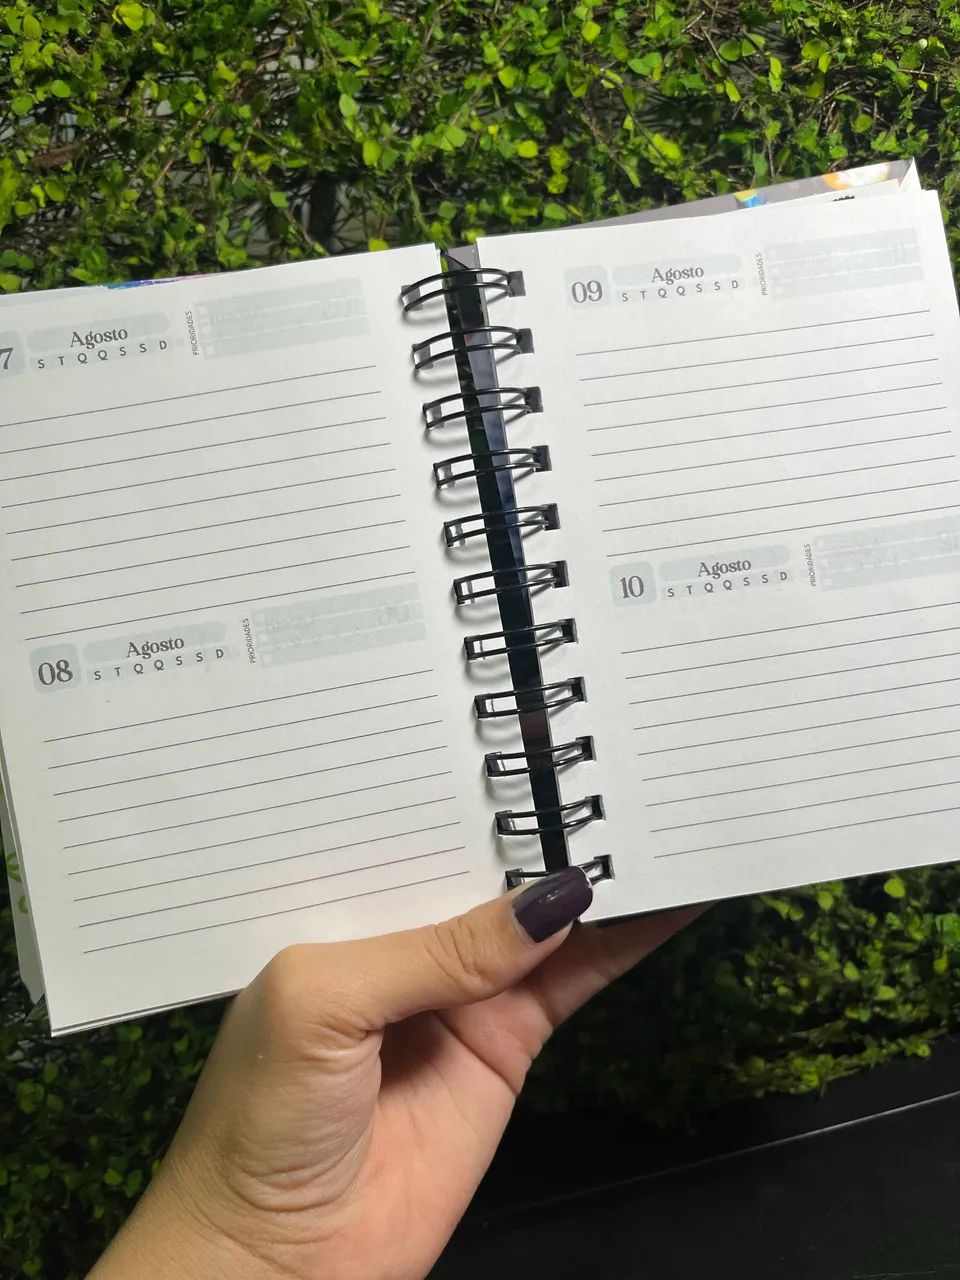 7
Agosto
S T Q Q S S D
PRIORIDADES
08
Agosto
S T Q Q S S D
PRIORIDADES
09
Agosto
S T Q Q S S D
PRIORIDADES
10
Agosto
S T Q Q S S D
PRIORIDADES